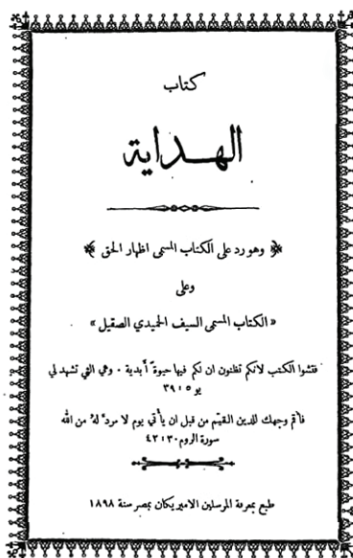 كتاب
الهداية
وهو رد على الكتاب المسمى اظهار الحق
وعلى
«الكتاب المسمى السيف الحميدي الصقيل»
فتشوا الكتب لانكم تظنون ان لكم فيها حيوة أبدية ٠ وهي التي تشهد لي
يو ٥ : ٣٩
فاقم وجهك للدين القيم من قبل ان يأتي يوم لا مرد له من الله
سورة الروم ٣٠ : ٤٣
طبع بمعرفة المرسلين الاميريكان بمصر سنة ١٨٩٨